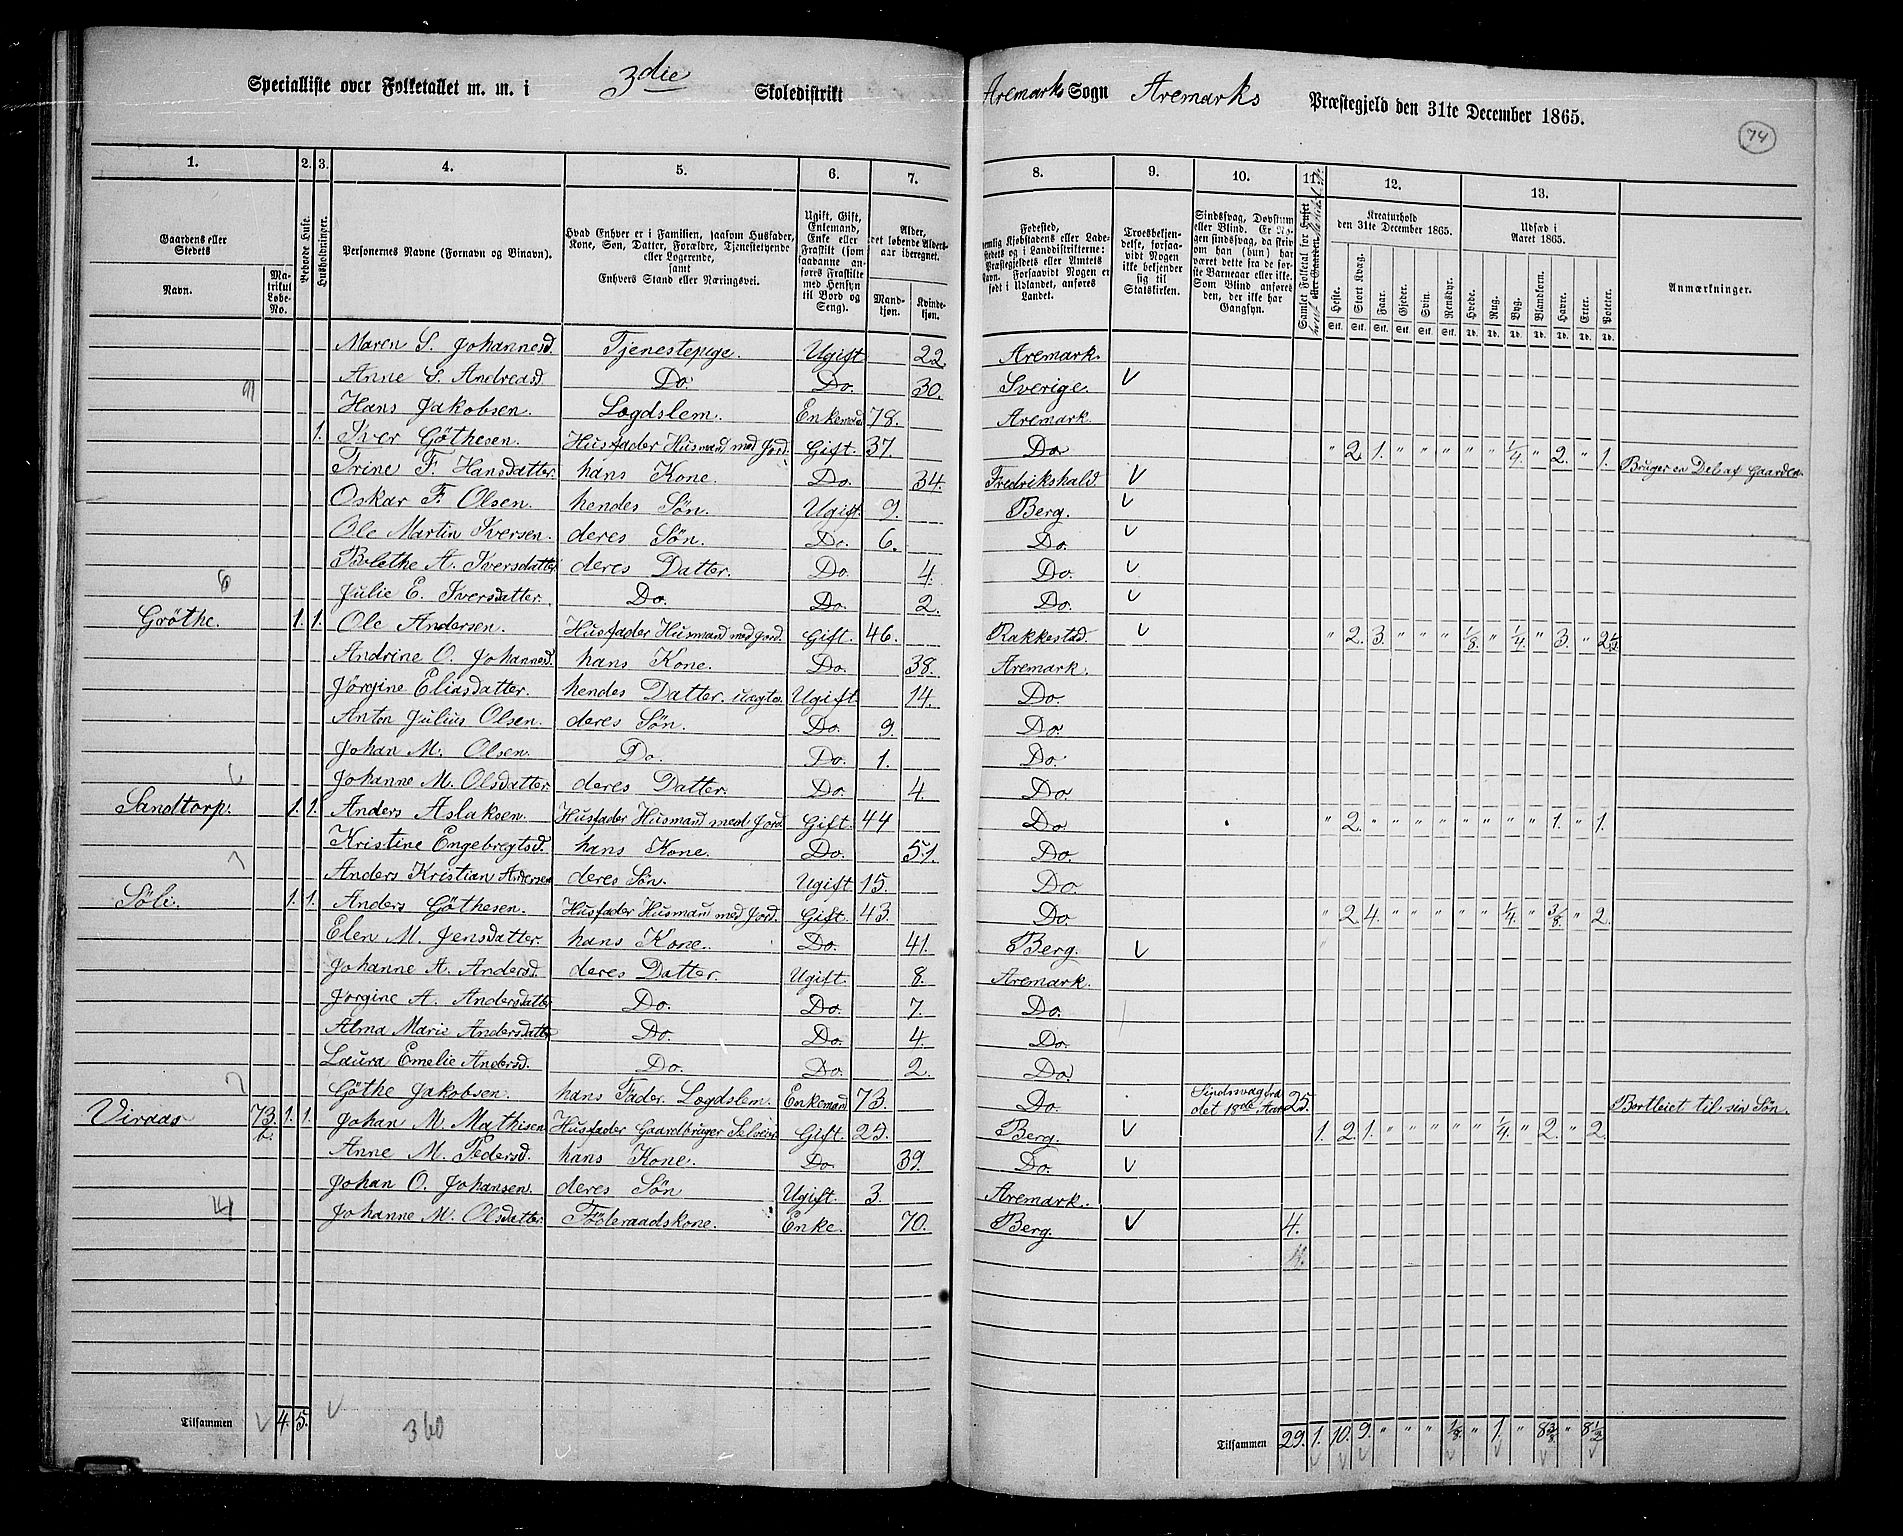 Specialliste over Folketallet m. m. i 3die Skoledistrikt Aremarks Sogn Aremarks Præstegjeld den 31te December 1865.
74
1. 2. 3. 4. 5. 6. 7. 8. 9. 10. 11. 12. 13.
Gaardens eller Stedets
Navn.
Matrikul Løbe-No.
Beboede Huse.
Husholdninger.
Personernes Navne (Fornavn og Binavn).
Hvad Enhver er i Familien, saasom Husfader, Kone, Søn, Datter, Forældre, Tjenestetyende eller Logerende, samt Enhvers Stand eller Næringsvei.
Ugift, Gift, Enkemand, Enke eller Fraskilt (som saadanne anføres Fraskilte med Hensyn til Bord og Seng).
Alder, det løbende Aldersaar iberegnet.
Mandkjøn. Kvindekjøn.
Fødested,
Troesbekjendelse, forsaavidt Nogen ikke bekjender sig til Statskirken.
Sindssvag, Døvstum eller Blind.
Samlet Folketal for Huset
Kreaturhold den 31te December 1865.
Heste. Stort Kvæg. Faar. Gjeder. Svin. Rensdyr.
Udsæd i Aaret 1865.
Hvede. Rug. Byg. Blandkorn. Havre. Erter. Poteter.
Anmærkninger.
Maren S. Johannesd. Tjenestepige. Ugift 22. Aremark.
Anne S. Andreasd Do. Do. 30. Sverige. V
Hans Jakobsen. Logdslem. Enkemd 78. Aremark.
1. Iver Göthesen. Husfader Husmand med Jord. Gift. 37. Do " 2. 1. " " " " " 1/4. " 2. " 1. Bruger en Del af Gaarden
Trine F. Hansdatter. hans Kone. Do. 34. Fredrikshald. V
Oskar F. Olsen. hendes Søn. Ugift. 9. Berg. V
Ole Martin Iversen. deres Søn. Do. 6. Do. V
A. Iversdatter deres Datter. Do. 4. Do. V
Julie E. Iversdatter. Do. Do. 2. Do. V
Gröthe. 1. 1. Ole Andersen. Husfader Husmand med Jord. Gift. 46. Rakkestad. V " 2. 3. " " " 1/8. " 1/4. " 3. "
Andrine O. Johannesd. hans Kone. Do. 38. Aremark.
Jörgine Eliasdatter. hendes Datter. uægte Ugift. 14. Do.
Anton Julius Olsen. deres Søn. Do. 9. Do.
Johan M. Olsen. Do. Do. 1. Do.
Johanne M. Olsdatter. deres Datter. Do. 4. Do.
Sandtorp. 1. 1. Anders Aslaksen. Husfader Husmand med Jord Gift. 44 Do " 2. " " " " " " " " 1. " 1.
Kristine Engebregtsd. hans Kone. Do. 51. Do.
Anders Kristian Andersen deres Søn. Ugift 15. Do.
Söli. 1. 1. Anders Göthesen. Husfader Husmand med Jord. Gift. 43. Do. " 2. 4. " " " " " 1/4. " 3/8. " 2.
Elen M. Jensdatter. hans Kone. Do. 41. Berg. V
Johanne A. Andersd. deres Datter. Ugift. 8. Aremark.
Jørgine A. Andersdatter Do. Do. 7. Do.
Alma Marie Andersdatter Do. Do. 4. Do.
Laura Emelie Andersd. Do. Do. 2. Do.
Göthe Jakobsen. hans Fader. Logdslem. Enkemand 73. Do. Sindssvag fra det 18de Aar 25. Bortleiet til sin Søn.
Viraas 73. b. 1. 1. Johan M. Mathisen Husfader Gaardbruger Selveier Gift. Berg. V 1. 2. 1. " " " " " 1/4. " 2. " 2.
Anne M. Pedersd. hans Kone. Do. 39. Do. V
Johan O. Johansen. deres Søn Ugift. 3. Aremark.
Johanne M. Olsdatter Föderaadskone. Enke. 70. Berg. V 4.
4.
Tilsammen 4. 5. 360
Tilsammen 29. 1. 10. 9. " " " 1/8. " 1. " 8 3/8. " 8 1/2